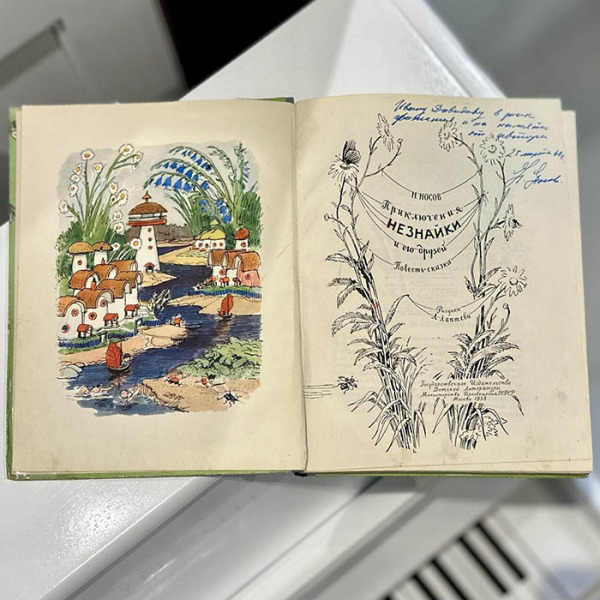 Ивану Давыдову в знак
уважения и на память
от автора
21 марта 61г.
Н. Носов.
Н. НОСОВ
Приключения
НЕЗНАЙКИ
и его друзей
Повесть-сказка
Рисунки
А. Лаптева
Государственное Издательство
Детской Литературы
Министерства Просвещения РСФСР
Москва 1958